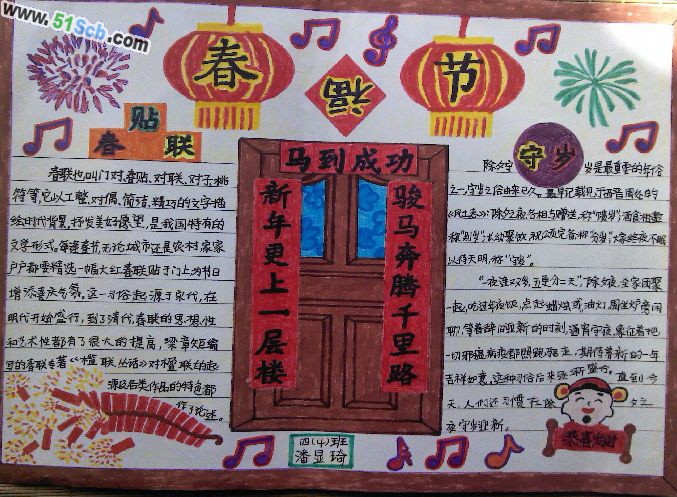 www.51Scb.com
春节
福
贴
春联
守岁
马到成功
骏马奔腾千里路
新年更上一层楼
春联也叫门对、春贴、对联、对子、桃
符等,它以工整、对偶、简洁、精巧的文字描
绘时代背景,抒发美好愿望,是我国特有的
文学形式。每逢春节,无论城市还是农村,家家
户户都要精选一幅大红春联贴于门上,为节日
增添喜庆气氛。这一习俗起源于宋代,在
明代开始盛行,到了清代,春联的思想性
和艺术性都有了很大的提高,梁章矩编
写的春联专著《楹联丛话》对楹联的起
源及各类作品的特色都
作了论述。
除夕守岁是最重要的年俗
之一,守岁之俗由来已久。最早记载见于西晋周处的
《风土志》:除夕之夜,各相与赠送,称“馈岁”;酒食相邀,
称“别岁”;长幼聚饮,祝颂完备,称“分岁”;大家终夜不眠,
以待天明,称“守岁”。
“一夜连双岁,五更分二天”,除夕夜,全家团聚
一起,吃过年夜饭,点起蜡烛或油灯,围坐炉旁闲
聊,等着辞旧迎新的时刻,通宵守夜,象征着把
一切邪瘟病疫都照跑驱走,期待着新的一年
吉祥如意。这种习俗后来逐渐盛行,直到今
天,人们还习惯在除夕之
夜守岁迎新。
恭喜发财
四(4)班
潘显琦